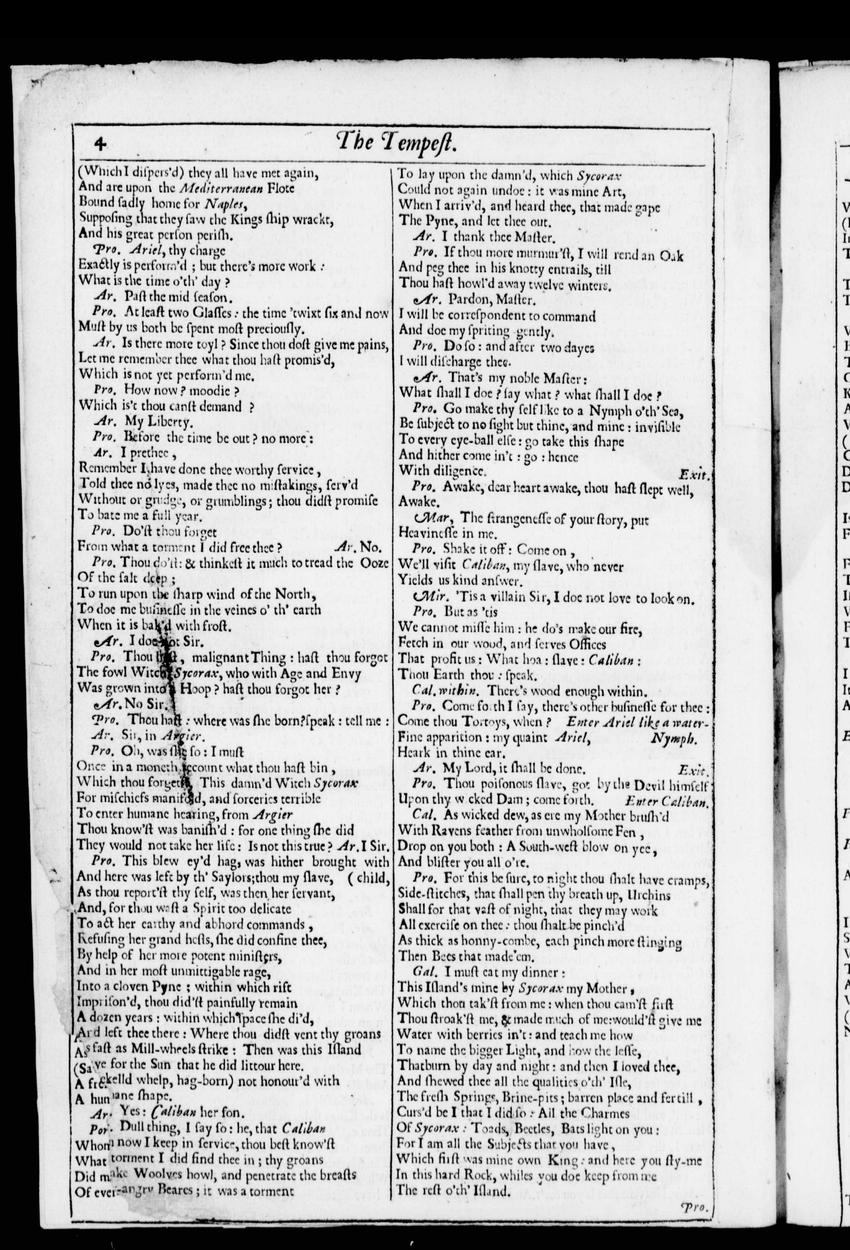 4
The Tempeſt.
(Which I diſpers'd) they all have met again,
And are upon the Mediterranean Flote
Bound ſadly home for Naples,
Suppoſing that they ſaw the Kings ſhip wrackt,
And his great perſon periſh.
Pro. Ariel, thy charge
Exactly is perform'd ; but there's more work :
What is the time o'th' day ?
Ar. Paſt the mid ſeaſon.
Pro. At leaſt two Glaſſes : the time 'twixt ſix and now
Muſt by us both be ſpent moſt preciouſly.
Ar. Is there more toyl ? Since thou doſt give me pains,
Let me remember thee what thou haſt promis'd,
Which is not yet perform'd me.
Pro. How now ? moodie ?
Which is't thou canſt demand ?
Ar. My Liberty.
Pro. Before the time be out ? no more :
Ar. I prethee,
Remember I have done thee worthy ſervice,
Told thee no lyes, made thee no miſtakings, ſerv'd
Without or grudge, or grumblings; thou didſt promiſe
To bate me a full year.
Pro. Do'ſt thou forget
From what a torment I did free thee ? Ar. No.
Pro. Thou do'ſt: & thinkeſt it much to tread the Ooze
Of the ſalt deep ;
To run upon the ſharp wind of the North,
To doe me buſineſſe in the veines o' th' earth
When it is bak'd with froſt.
Ar. I doe not Sir.
Pro. Thou, malignant Thing : haſt thou forgot
The fowl Witch Sycorax, who with Age and Envy
Was grown into a Hoop ? haſt thou forgot her ?
Ar. No Sir.
Pro. Thou haſt : where was ſhe born? ſpeak : tell me :
Ar. Sir, in Argier.
Pro. Oh, was ſhe ſo : I muſt
Once in a moneth account what thou haſt bin,
Which thou forgetſt. This damn'd Witch Sycorax
For miſchiefs manifold, and ſorceries terrible
To enter humane hearing, from Argier
Thou know'ſt was baniſh'd : for one thing ſhe did
They would not take her life : Is not this true ? Ar. I Sir.
Pro. This blew ey'd hag, was hither brought with
And here was left by th' Saylors; thou my ſlave, ( child,
As thou report'ſt thy ſelf, was then her ſervant,
And, for thou waſt a Spirit too delicate
To act her earthy and abhord commands,
Refuſing her grand heſts, ſhe did confine thee,
By help of her more potent miniſters,
And in her moſt unmittigable rage,
Into a cloven Pyne ; within which rift
Impriſon'd, thou did'ſt painfully remain
A dozen years : within which ſpace ſhe di'd,
And left thee there : Where thou didſt vent thy groans
As faſt as Mill-wheels ſtrike : Then was this Iſland
(Save for the Sun that he did littour here.
A freckelld whelp, hag-born) not honour'd with
A humane ſhape.
Ar. Yes : Caliban her ſon.
Por. Dull thing, I ſay ſo : he, that Caliban
Whom now I keep in ſervice, thou beſt know'ſt
What torment I did find thee in ; thy groans
Did make Woolves howl, and penetrate the breaſts
Of ever-angry Beares ; it was a torment
To lay upon the damn'd, which Sycorax
Could not again undoe : it was mine Art,
When I arriv'd, and heard thee, that made gape
The Pyne, and let thee out.
Ar. I thank thee Maſter.
Pro. If thou more murmur'ſt, I will rend an Oak
And peg thee in his knotty entrails, till
Thou haſt howl'd away twelve winters.
Ar. Pardon, Maſter.
I will be correſpondent to command
And doe my ſpriting gently.
Pro. Do ſo : and after two dayes
I will diſcharge thee.
Ar. That's my noble Maſter :
What ſhall I doe ? ſay what ? what ſhall I doe ?
Pro. Go make thy ſelf like to a Nymph o'th' Sea,
Be ſubject to no ſight but thine, and mine : inviſible
To every eye-ball elſe : go take this ſhape
And hither come in't : go : hence
With diligence. Exit.
Pro. Awake, dear heart awake, thou haſt ſlept well,
Awake.
Mar, The ſtrangeneſſe of your ſtory, put
Heavineſſe in me.
Pro. Shake it off : Come on,
We'll viſit Caliban, my ſlave, who never
Yields us kind anſwer.
Mir. 'Tis a villain Sir, I doe not love to look on.
Pro. But as 'tis
We cannot miſſe him : he do's make our fire,
Fetch in our wood, and ſerves Offices
That profit us : What hoa : ſlave : Caliban :
Thou Earth thou : ſpeak.
Cal. within. There's wood enough within.
Pro. Come forth I ſay, there's other buſineſſe for thee :
Come thou Tortoys, when ? Enter Ariel like a water-
Fine apparition : my quaint Ariel, Nymph.
Heark in thine ear.
Ar. My Lord, it ſhall be done. Exit.
Pro. Thou poiſonous ſlave, got by the Devil himſelf
Upon thy wcked Dam ; come forth. Enter Caliban.
Cal. As wicked dew, as ere my Mother bruſh'd
With Ravens feather from unwholſome Fen,
Drop on you both : A South-weſt blow on yee,
And bliſter you all o're.
Pro. For this be ſure, to night thou ſhalt have cramps,
Side-ſtitches, that ſhall pen thy breath up, Urchins
Shall for that vaſt of night, that they may work
All exerciſe on thee : thou ſhalt be pinch'd
As thick as honny-combe, each pinch more ſtinging
Then Bees that made'em.
Gal. I muſt eat my dinner :
This Iſland's mine by Sycorax my Mother,
Which thou tak'ſt from me : when thou cam'ſt firſt
Thou ſtroak'ſt me, & made much of me: would'ſt give me
Water with berries in't : and teach me how
To name the bigger Light, and how the leſſe,
That burn by day and night : and then I loved thee,
And ſhewed thee all the qualities o'th' Iſle,
The freſh Springs, Brine-pits ; barren place and fertill,
Curs'd be I that I did ſo : All the Charmes
Of Sycorax : Toads, Beetles, Bats light on you :
For I am all the Subjects that you have,
Which firſt was mine own King : and here you ſty-me
In this hard Rock, whiles you doe keep from me
The reſt o'th' Iſland.
Pro.